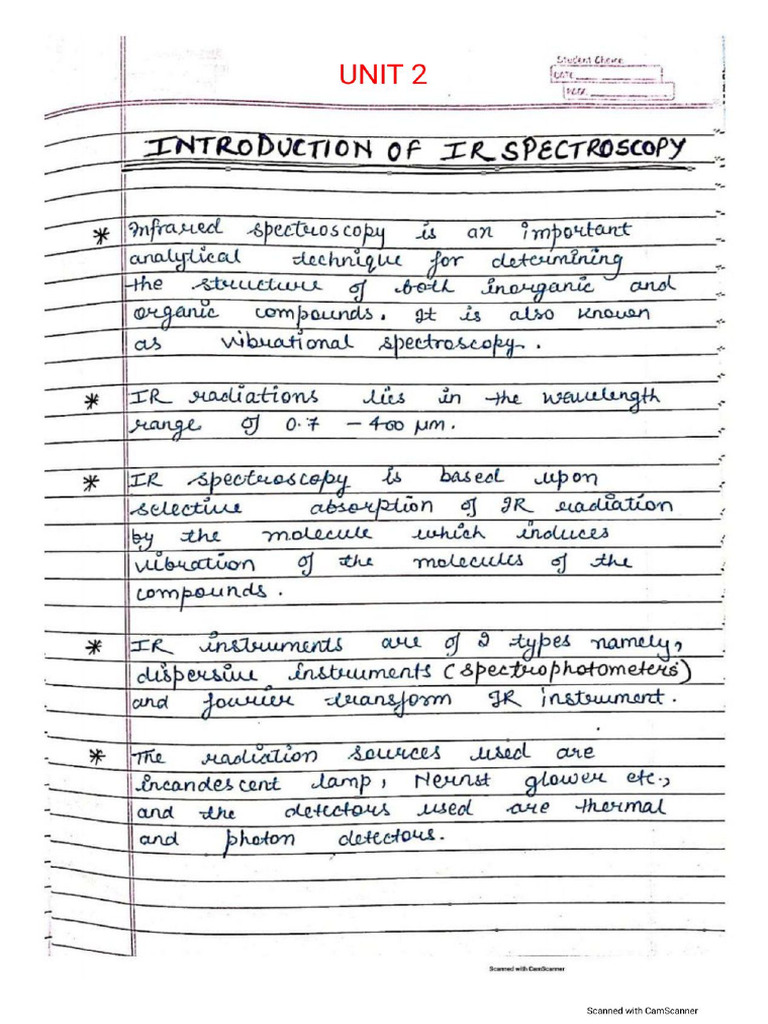 UNIT 2
Student Choice
DATE
PAGE
INTRODUCTION OF IR SPECTROSCOPY
* Infrared spectroscopy is an important
analytical technique for determining
the structure of both inorganic and
organic compounds. It is also known
as vibrational spectroscopy.
* IR radiations lies in the wavelength
range of 0.7 - 400 μm.
* IR spectroscopy is based upon
selective absorption of IR radiation
by the molecule which induces
vibration of the molecules of the
compounds.
* IR instruments are of 2 types namely,
dispersive instruments (spectrophotometers)
and fourier transform IR instrument.
* The radiation sources used are
incandescent lamp, Nernst glower etc.,
and the detectors used are thermal
and photon detectors.
Scanned with CamScanner
Scanned with CamScanner